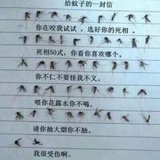 给蚊子的一封信
你在咬我试试，选好你的死相。
死相50式，你看你喜欢哪个。
你不仁不要怪我不义。
喂你花露水你不喝，
请你抽大烟你不抽。
我很受伤啊。